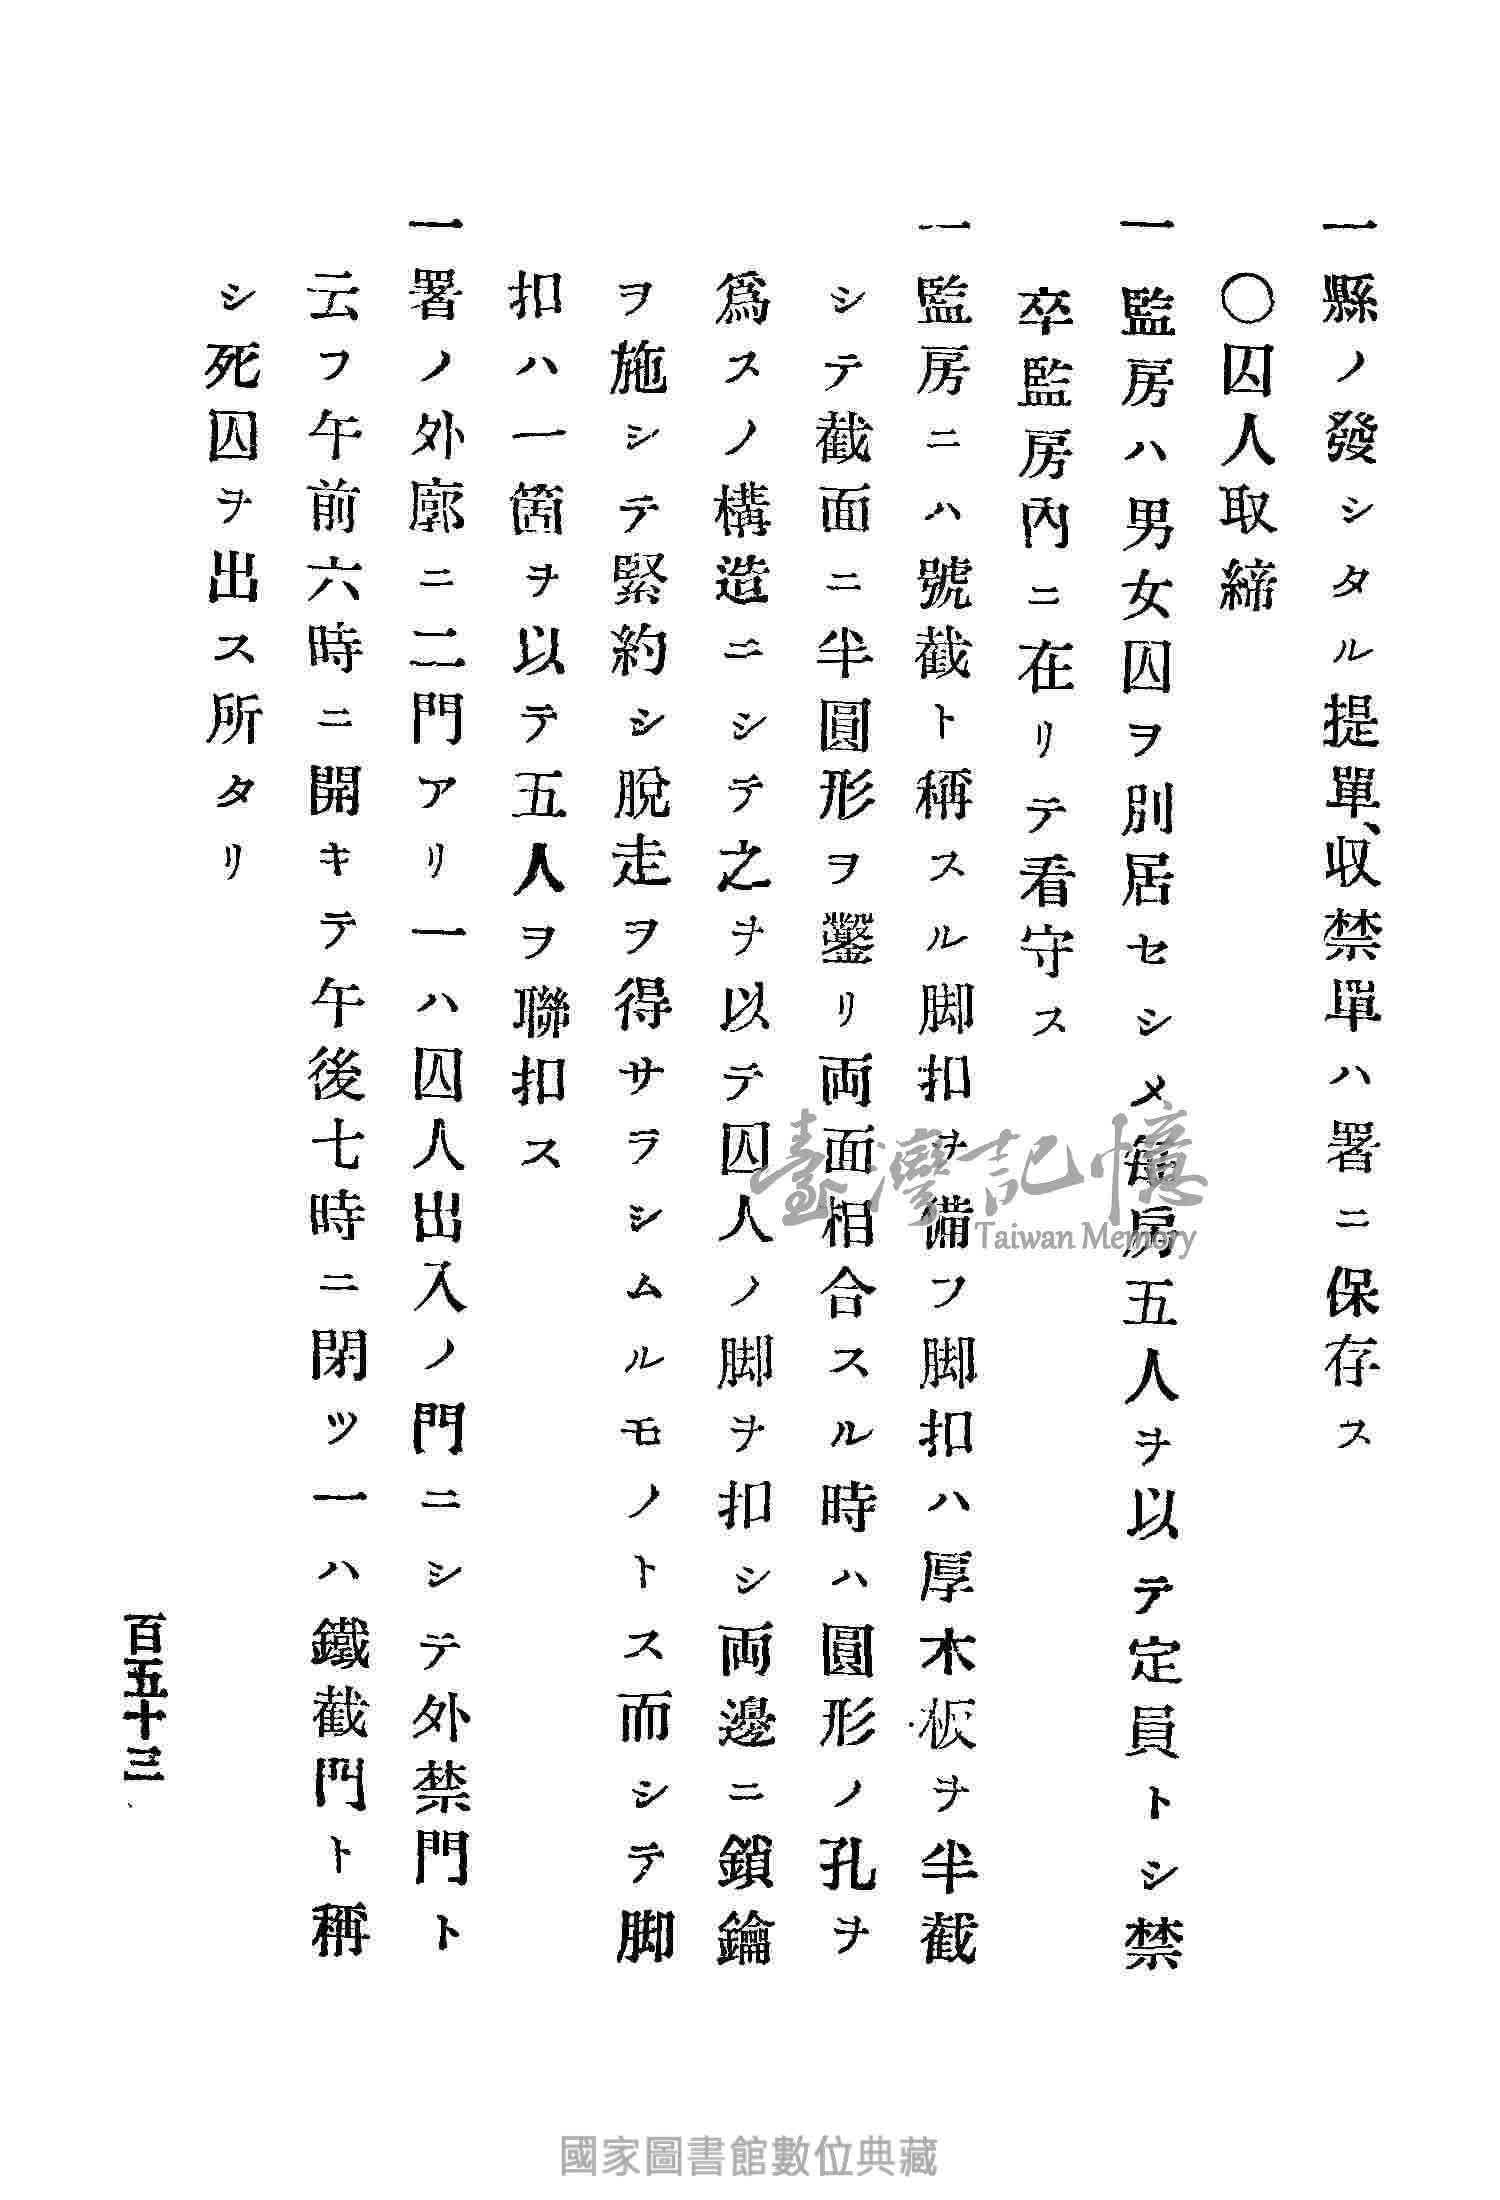 一縣ノ發シタル提單、収禁單ハ署ニ保存ス
〇囚人取締
一監房ハ男女囚ヲ別居セシメ毎房五人ヲ以テ定員トシ禁
卒監房內ニ在リテ看守ス
一監房ニハ號截ト稱スル脚扣ヲ備フ脚扣ハ厚木板ヲ半截
シテ截面ニ半圓形ヲ鑿リ両面相合スル時ハ圓形ノ孔ヲ
爲スノ構造ニシテ之ヲ以テ囚人ノ脚ヲ扣シ両邊ニ鎖鑰
ヲ施シテ緊約シ脫走ヲ得サラシムルモノトス而シテ脚
扣ハ一箇ヲ以テ五人ヲ聯扣ス
一署ノ外廓ニ二門アリ一ハ囚人出入ノ門ニシテ外禁門ト
云フ午前六時ニ開キテ午後七時ニ閉ツ一ハ鐵截門ト稱
シ死囚ヲ出ス所タリ
百五十三
臺灣記憶
Taiwan Memory
國家圖書館數位典藏